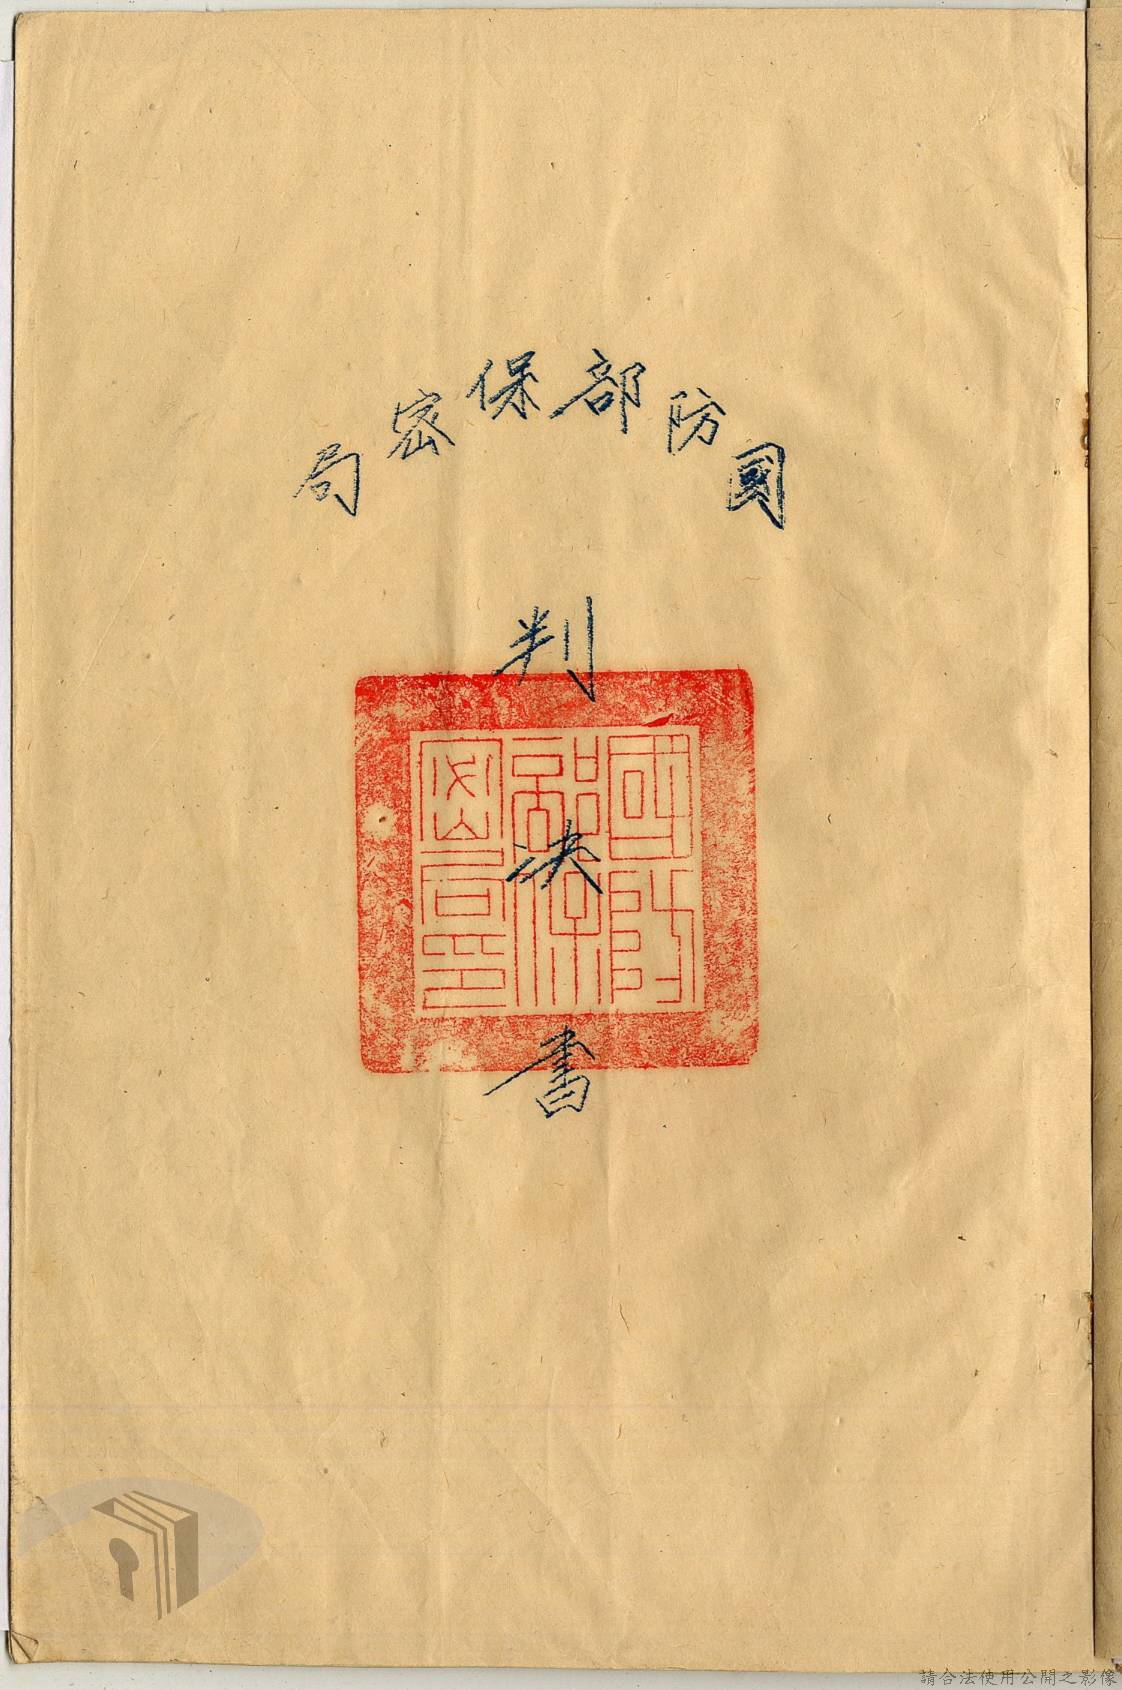 國防部保密局
判決書
國防部保密局印
請合法使用公開之影像